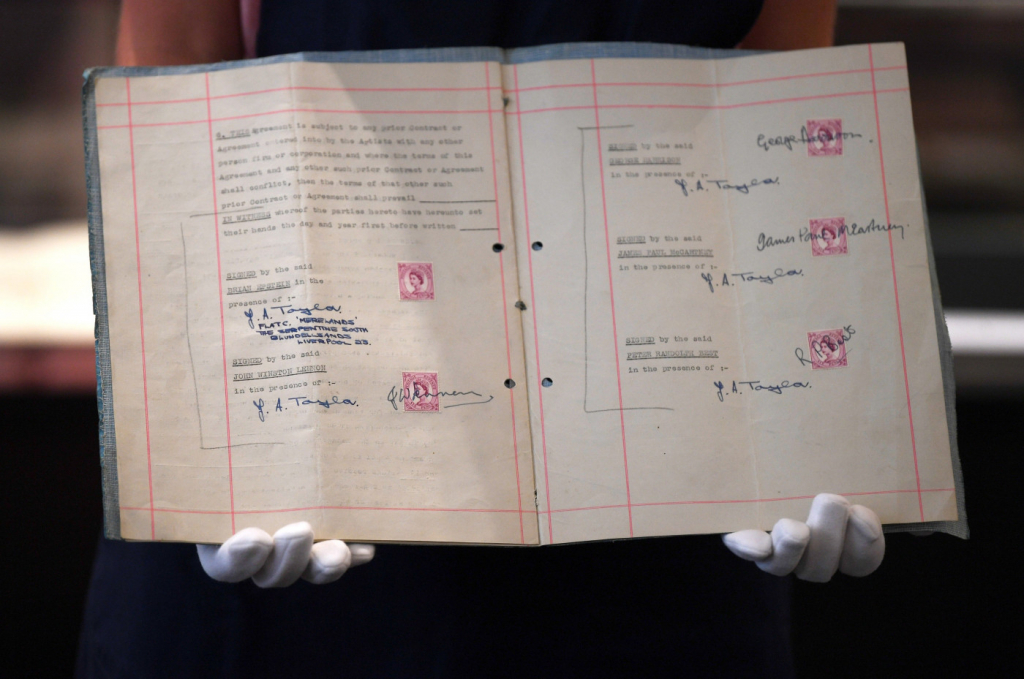 8. THIS Agreement is subject to any prior Contract or
Agreement entered into by the Artists with any other
person firm or corporation and where the terms of this
Agreement and any other such prior Contract or Agreement
shall conflict, then the terms of that other such
prior Contract or Agreement shall prevail
IN WITNESS whereof the parties hereto have hereunto set
their hands the day and year first before written
SIGNED by the said
BRIAN EPSTEIN in the
presence of :-
J. A. Taylor.
FLAT C. 'MERELANDS'
THE SERPENTINE SOUTH
BLUNDELLSANDS
LIVERPOOL 23.
SIGNED by the said
JOHN WINSTON LENNON
in the presence of :-
J. A. Taylor.
J W Lennon
SIGNED by the said
GEORGE HARRISON
in the presence of :-
George Harrison.
J. A. Taylor.
SIGNED by the said
JAMES PAUL McCARTNEY
in the presence of :-
James Paul McCartney.
J. A. Taylor.
SIGNED by the said
PETER RANDOLPH BEST
in the presence of :-
R P Best
J. A. Taylor.